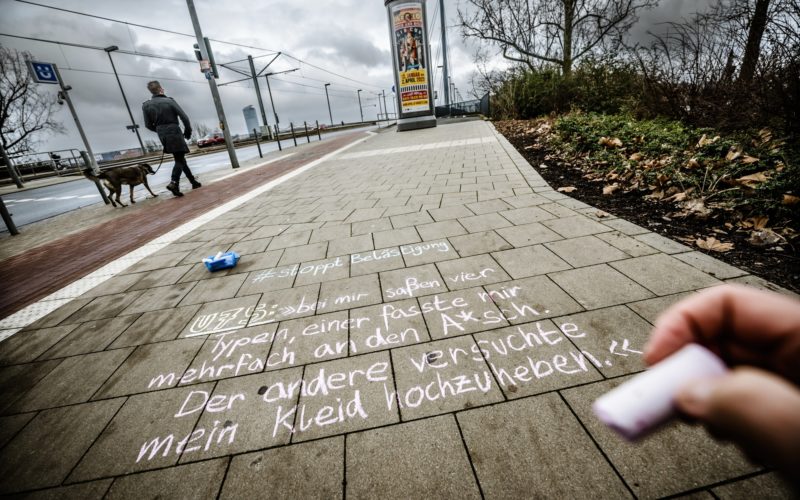 #Stoppt Belästigung
U75: »bei mir saßen vier
Typen, einer fasste mir
mehrfach an den A*sch.
Der andere versuchte
mein Kleid hochzuheben.«